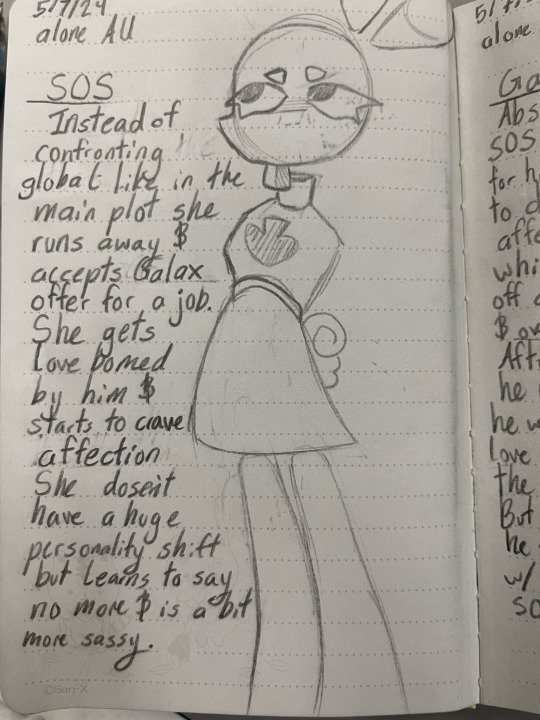 5/7/24
alone AU
SOS
Instead of
confronting
global like in the
main plot she
runs away $
accepts Galax
offer for a job.
She gets
love bomed
by him $
starts to crave
affection
She dosen't
have a huge
personality shift
but learns to say
no more $ is a bit
more sassy.
©San-X
alone
SOS
for h
to d
affe
whi
off
$ ov
Aft
he
he w
love
the
But
he
w/
so